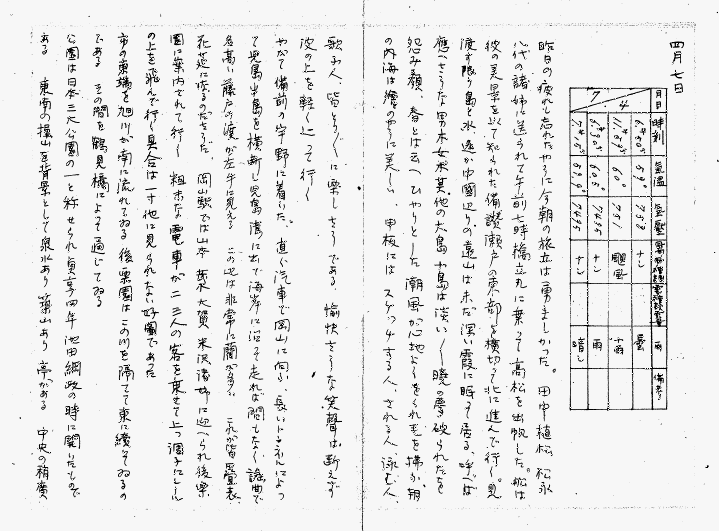 四月七日
月日 時刻 気温 気圧 雨 備考
7/4
758 ナシ 曇
60° 751 颶風 小雨
7455 ナシ 雨
7455 ナシ 晴シ
昨日の疲れも忘れたやうに今朝の旅立は勇ましかつた。田中 植松 松永
八代の諸姉に送られて午前七時橋立丸に乗つて高松を出帆した。船は
彼の美景を以て知られた備讃瀬戸の東部を横切つて北に進んで行く。見
渡す限り島と水 遠か中國辺りの遠山は未だ深い霞に眠つて居る。呼べば
應へさうな男木女木其他の大島小島は淡い〳〵暁の夢破られたを
怨み顔、春とは云へひやりとした潮風が心地よくをくれ毛を拂ふ、朝
の内海は繪のやうに美しい、甲板にはスケッチする人、される人、詠む人、
歌ふ人、皆とり〴〵に楽しさうである。愉快さうな笑聲は断えず
波の上を軽く辷つて行く
やがて備前の宇野に着いた。直ぐ汽車で岡山に向ふ、長いトンネルによつ
て児島半島を横断し児島湾に出で海岸に沿ふて走れば間もなく謡曲で
名高い藤戸の渡が左手に見える この辺は非常に藺が多い これが皆畳表、
花莚に成るのださうだ。岡山駅では山本 荻 大賀 米沢諸姉に迎へられ後楽
園に案内されて行く 粗末な電車が二三人の客を乗せて上つ調子にレール
の上を飛んで行く具合は一寸他に見られない好圖であつた
市の東端を旭川が南に流れてゐる 後楽園はこの川を隔てて東に續いてゐるの
である その間を鶴見橋によつて通じてゐる
公園は日本三大公園の一と称せられ貞享四年池田綱政の時に開いたもので
ある 東南の操山を背景として泉水あり築山あり 亭がある 中央の稍廣